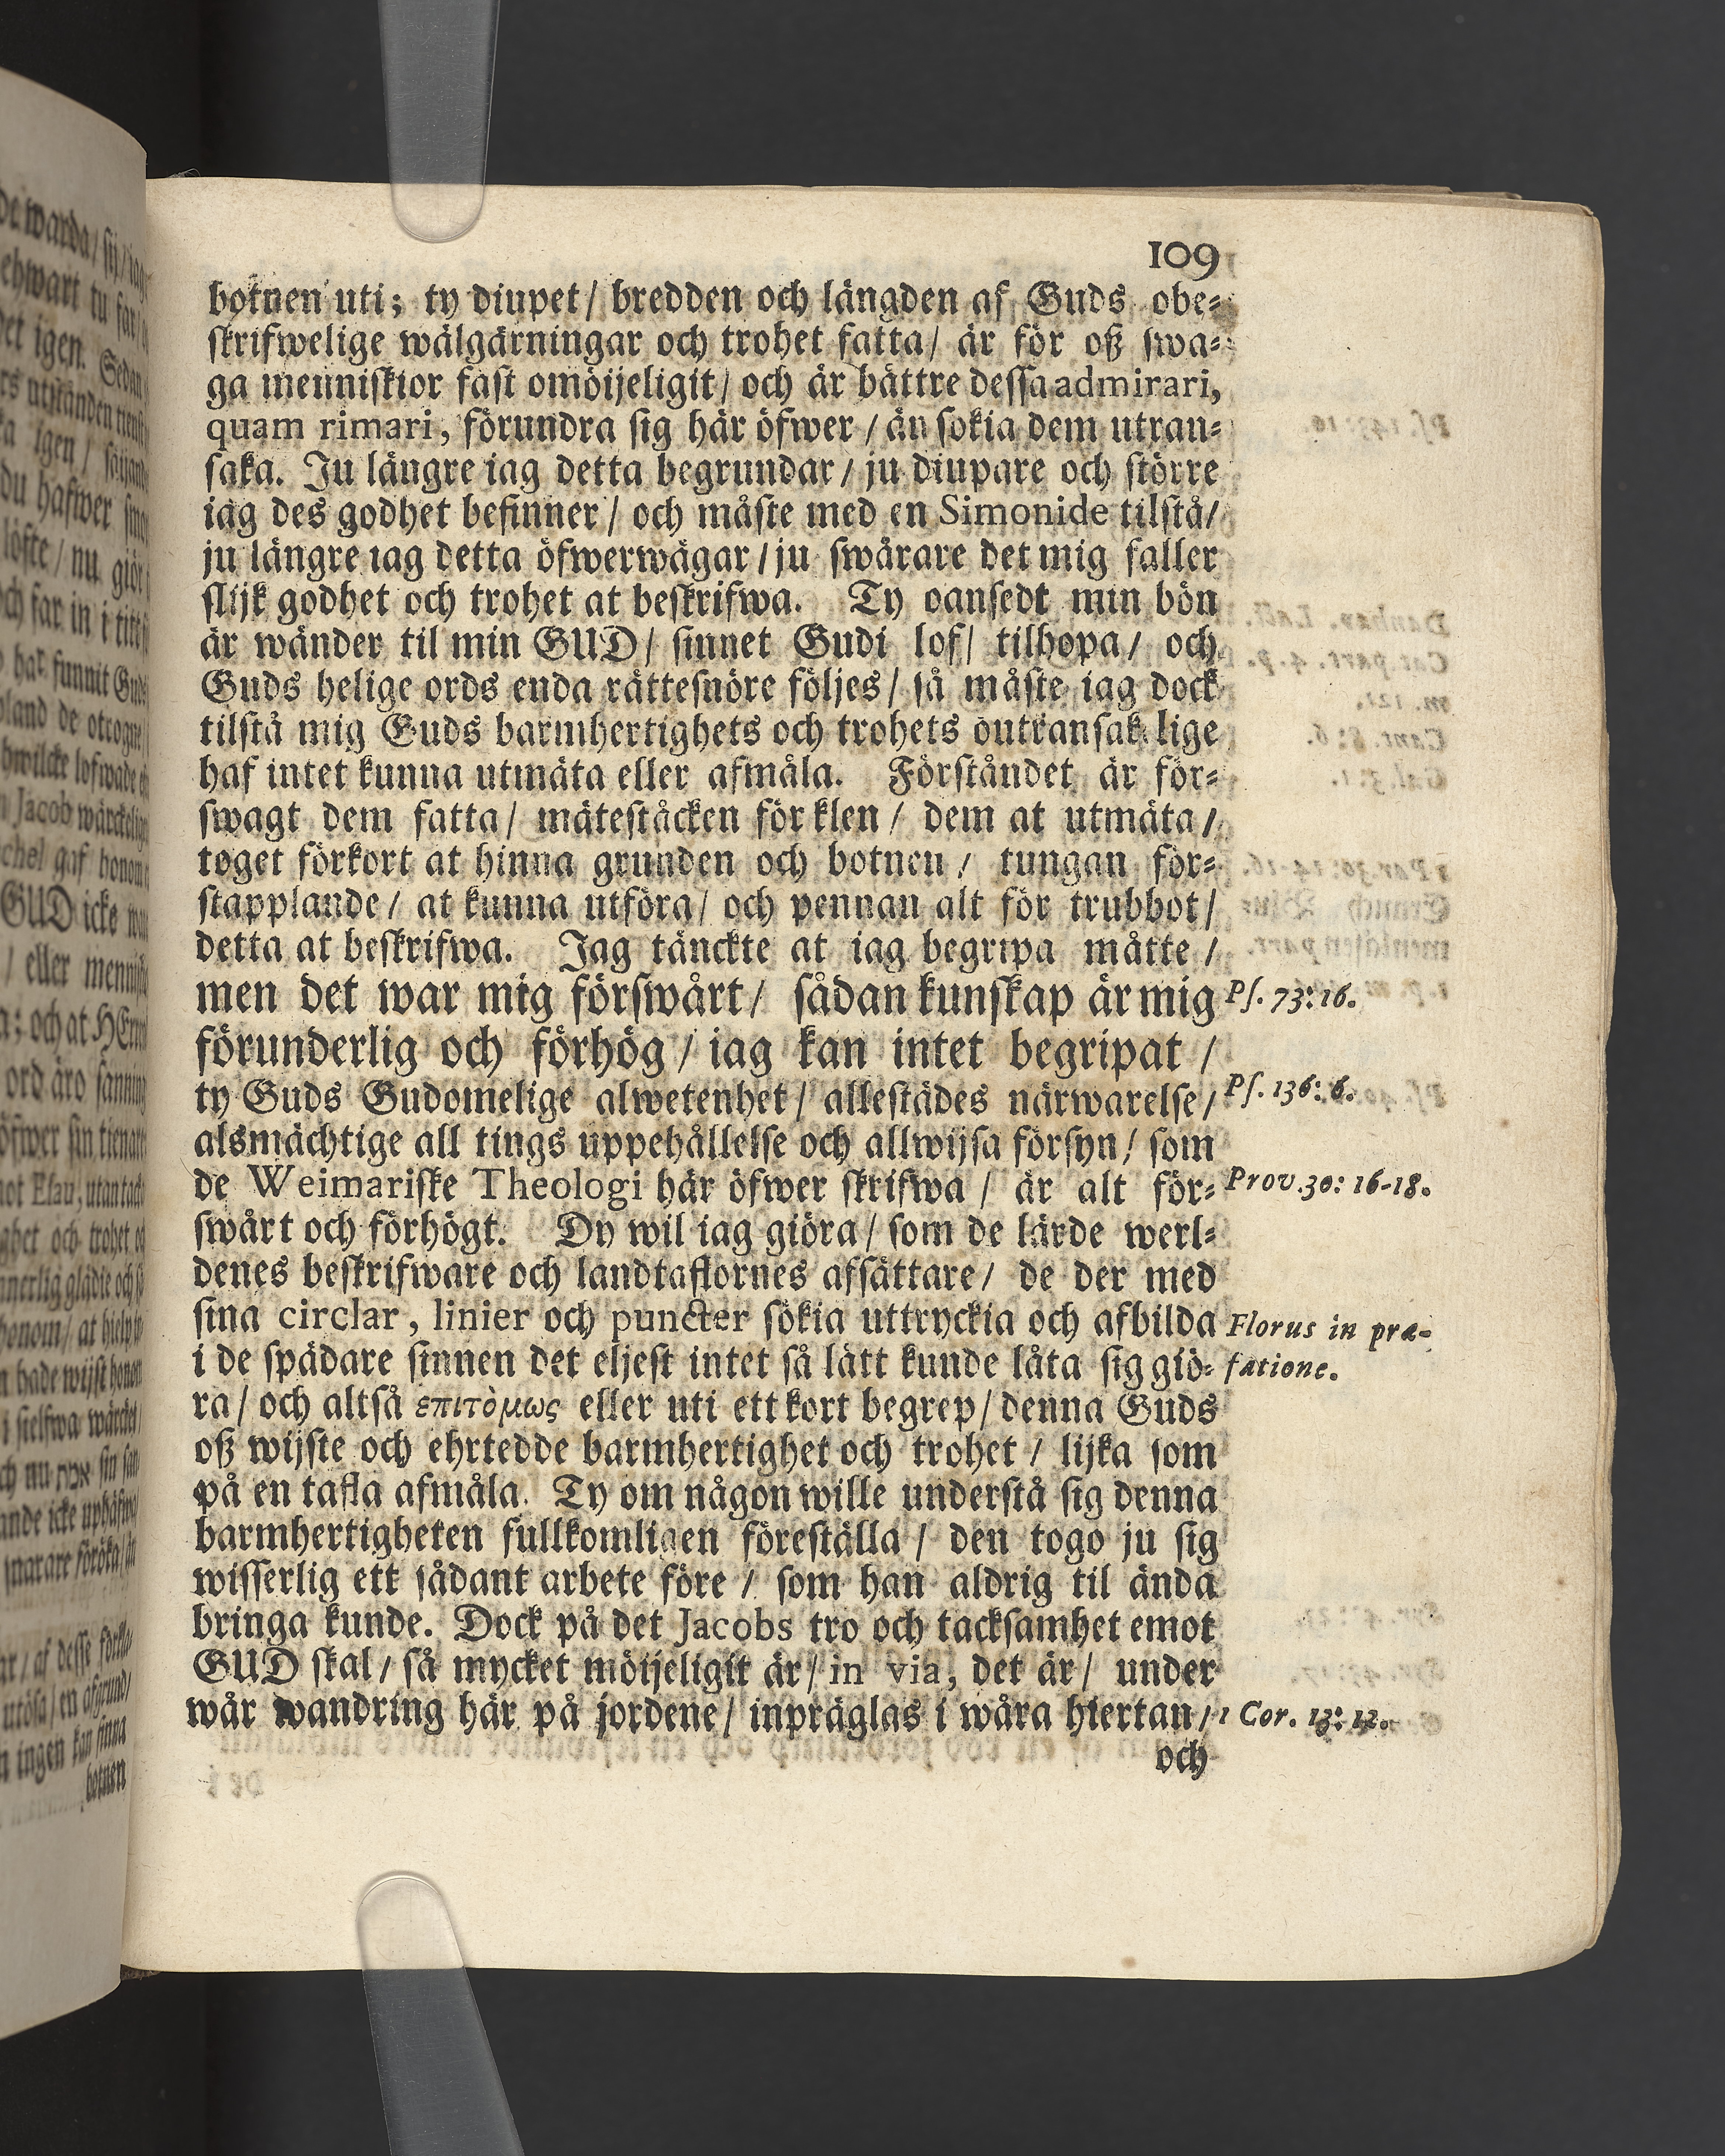 109
botnen uti; ty diupet/ bredden och längden af Guds obe-
skrifwelige wälgärningar och trohet fatta/ är för oß swa-
ga menniskior fast omöijeligit/ och är bättre dessa admirari,
quam rimari, förundra sig här öfwer / än sökia dem utran-
saka. Ju längre iag detta begrundar/ ju diupare och större
iag des godhet befinner/ och måste med en Simonide tilstå/
ju längre iag detta öfwerwägar/ ju swårare det mig faller
slijk godhet och trohet at beskrifwa. Ty oansedt min bön
är wänder til min GUD/ sinnet Gudi lof/ tilhopa/ och
Guds helige ords enda rättesnöre följes/ så måste iag dock
tilstå mig Guds barmhertighets och trohets outransakelige
haf intet kunna utmäta eller afmåla. Förståndet är för-
swagt dem fatta/ mätestäcken för klen/ dem at utmäta/
toget förkort at hinna grunden och botnen/ tungan för-
stapplande/ at kunna utföra/ och pennan alt för trubbot/
detta at beskrifwa. Jag tänckte at iag begripa måtte/
men det war mig förswårt/ sådan kunskap är mig Ps. 73: 16.
förunderlig och förhög/ iag kan intet begripat/
ty Guds Gudomelige alwetenhet/ allestädes närwarelse/ Ps. 136: 6.
alsmächtige all tings uppehållelse och allwijsa försyn/ som
de Weimariske Theologi här öfwer skrifwa/ är alt för- Prov. 30: 16-18.
swårt och förhögt. Dy wil iag giöra/ som de lärde werl-
denes beskrifware och landtaflornes afsättare/ de der med
sina circlar, linier och puncter sökia uttryckia och afbilda Florus in præ-
i de spädare sinnen det eljest intet så lätt kunde låta sig giö- fatione.
ra/ och altså επιτòμως eller uti ett kort begrep/ denna Guds
oß wijste och ehrtedde barmhertighet och trohet/ lijka som
på en tafla afmåla. Ty om någon wille understå sig denna
barmhertigheten fullkomligen föreställa/ den togo ju sig
wisserlig ett sådant arbete före/ som han aldrig til ända
bringa kunde. Dock på det Jacobs tro och tacksamhet emot
GUD skal/ så mycket möijeligit är/ in via, det är/ under
wår wandring här på jordene/ inpräglas i wåra hiertan/ 1 Cor. 13: 12.
och